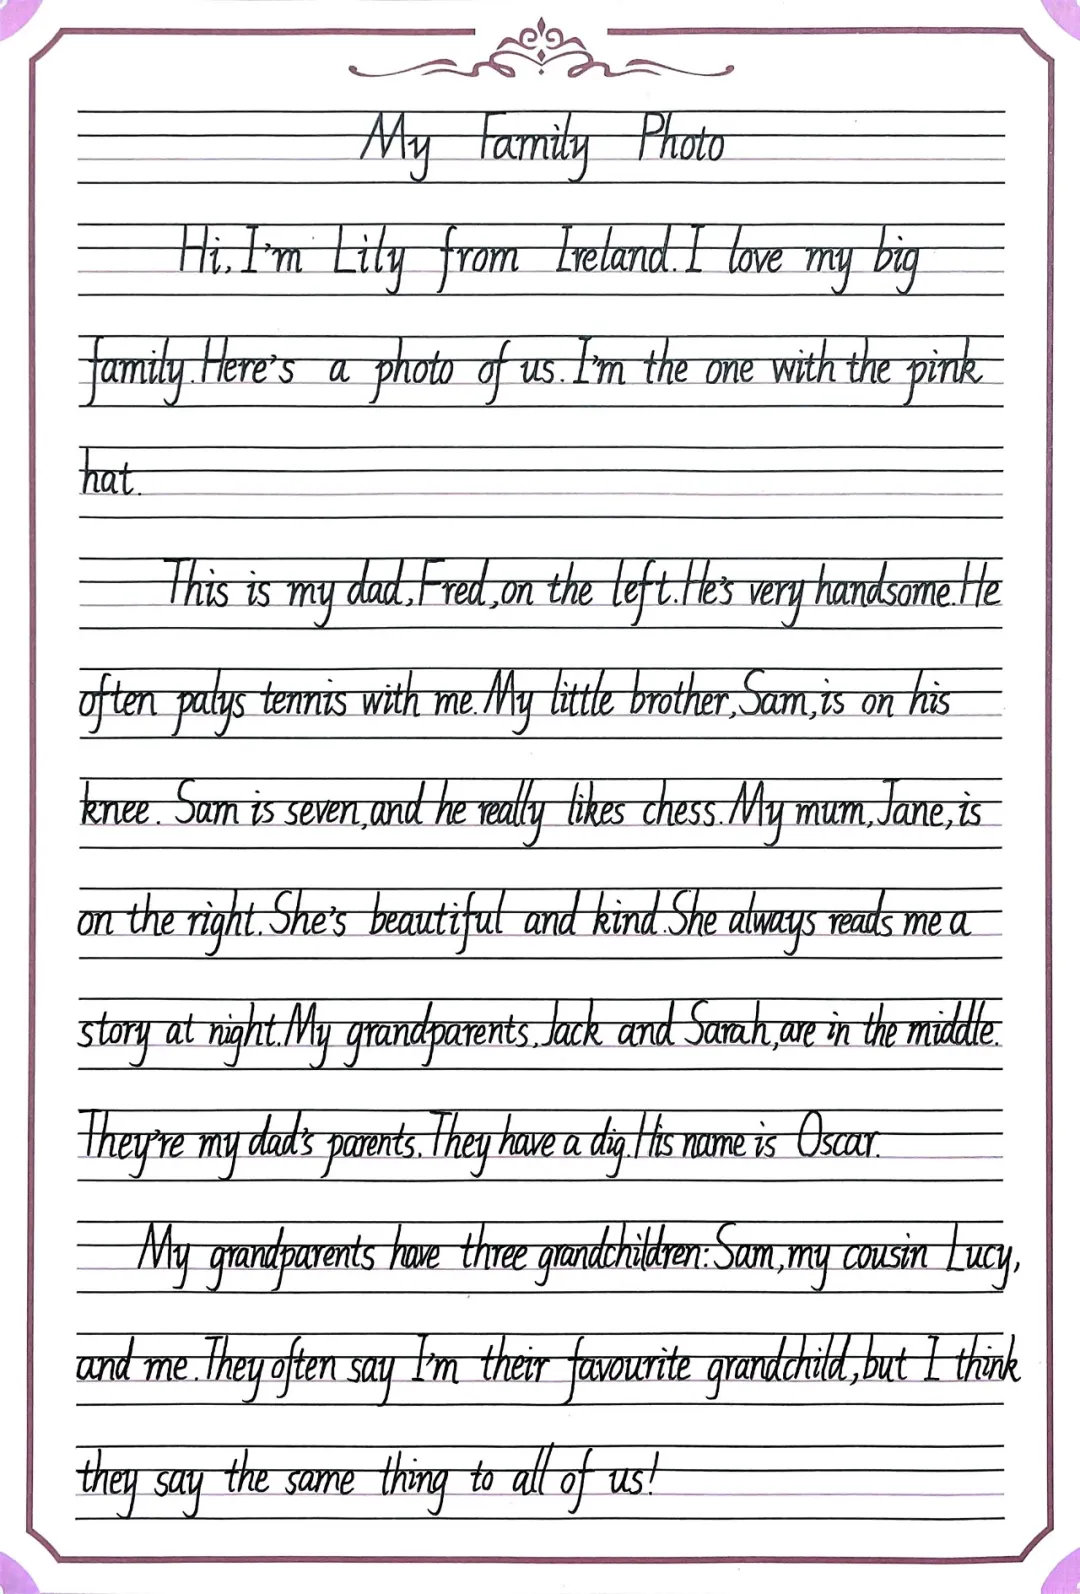 My Family Photo
Hi, I'm Lily from Ireland. I love my big
family. Here's a photo of us. I'm the one with the pink
hat.
This is my dad, Fred, on the left. He's very handsome. He
often palys tennis with me. My little brother, Sam, is on his
knee. Sam is seven, and he really likes chess. My mum, Jane, is
on the right. She's beautiful and kind. She always reads me a
story at night. My grandparents, Jack and Sarah, are in the middle.
They're my dad's parents. They have a dig. His name is Oscar.
My grandparents have three grandchildren: Sam, my cousin Lucy,
and me. They often say I'm their favourite grandchild, but I think
they say the same thing to all of us!